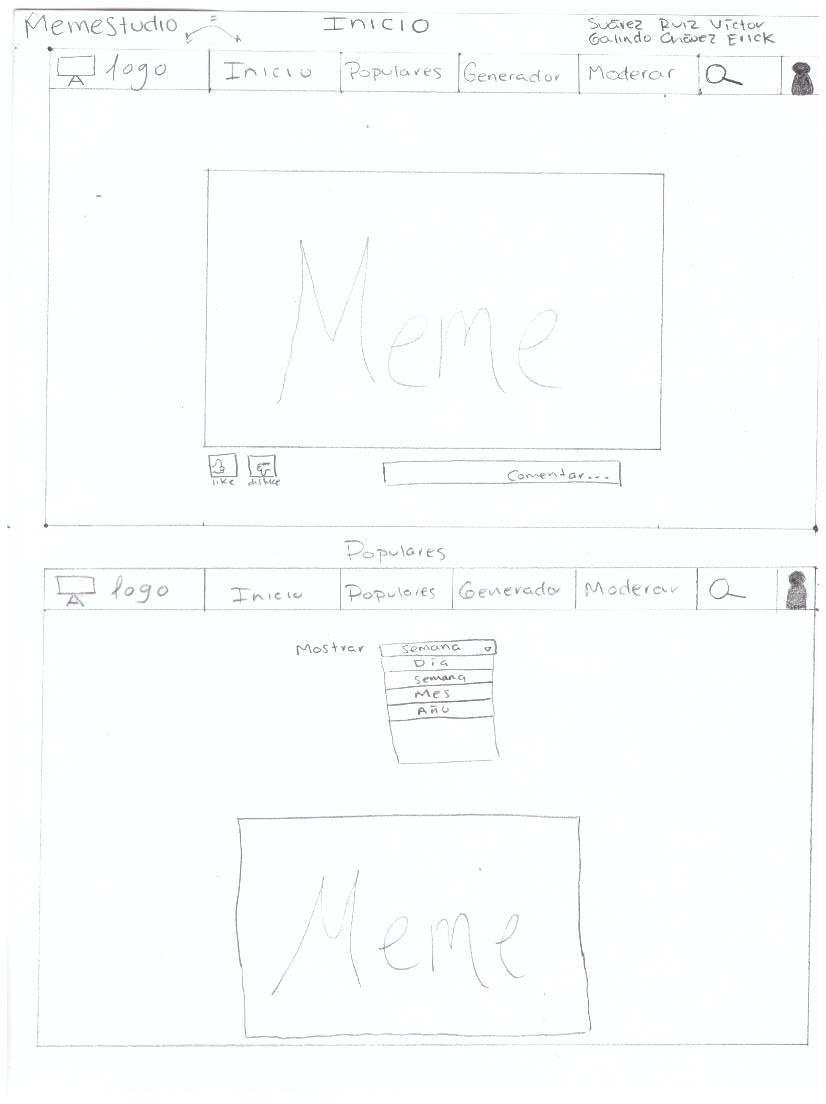 MemeStudio
Inicio
Suárez Ruiz Víctor
Galindo Chávez Erick
logo Inicio Populares Generador Moderar
Meme
like dislike
Comentar...
Populares
logo Inicio Populares Generador Moderar
Mostrar Semana
Día
Semana
Mes
Año
Meme